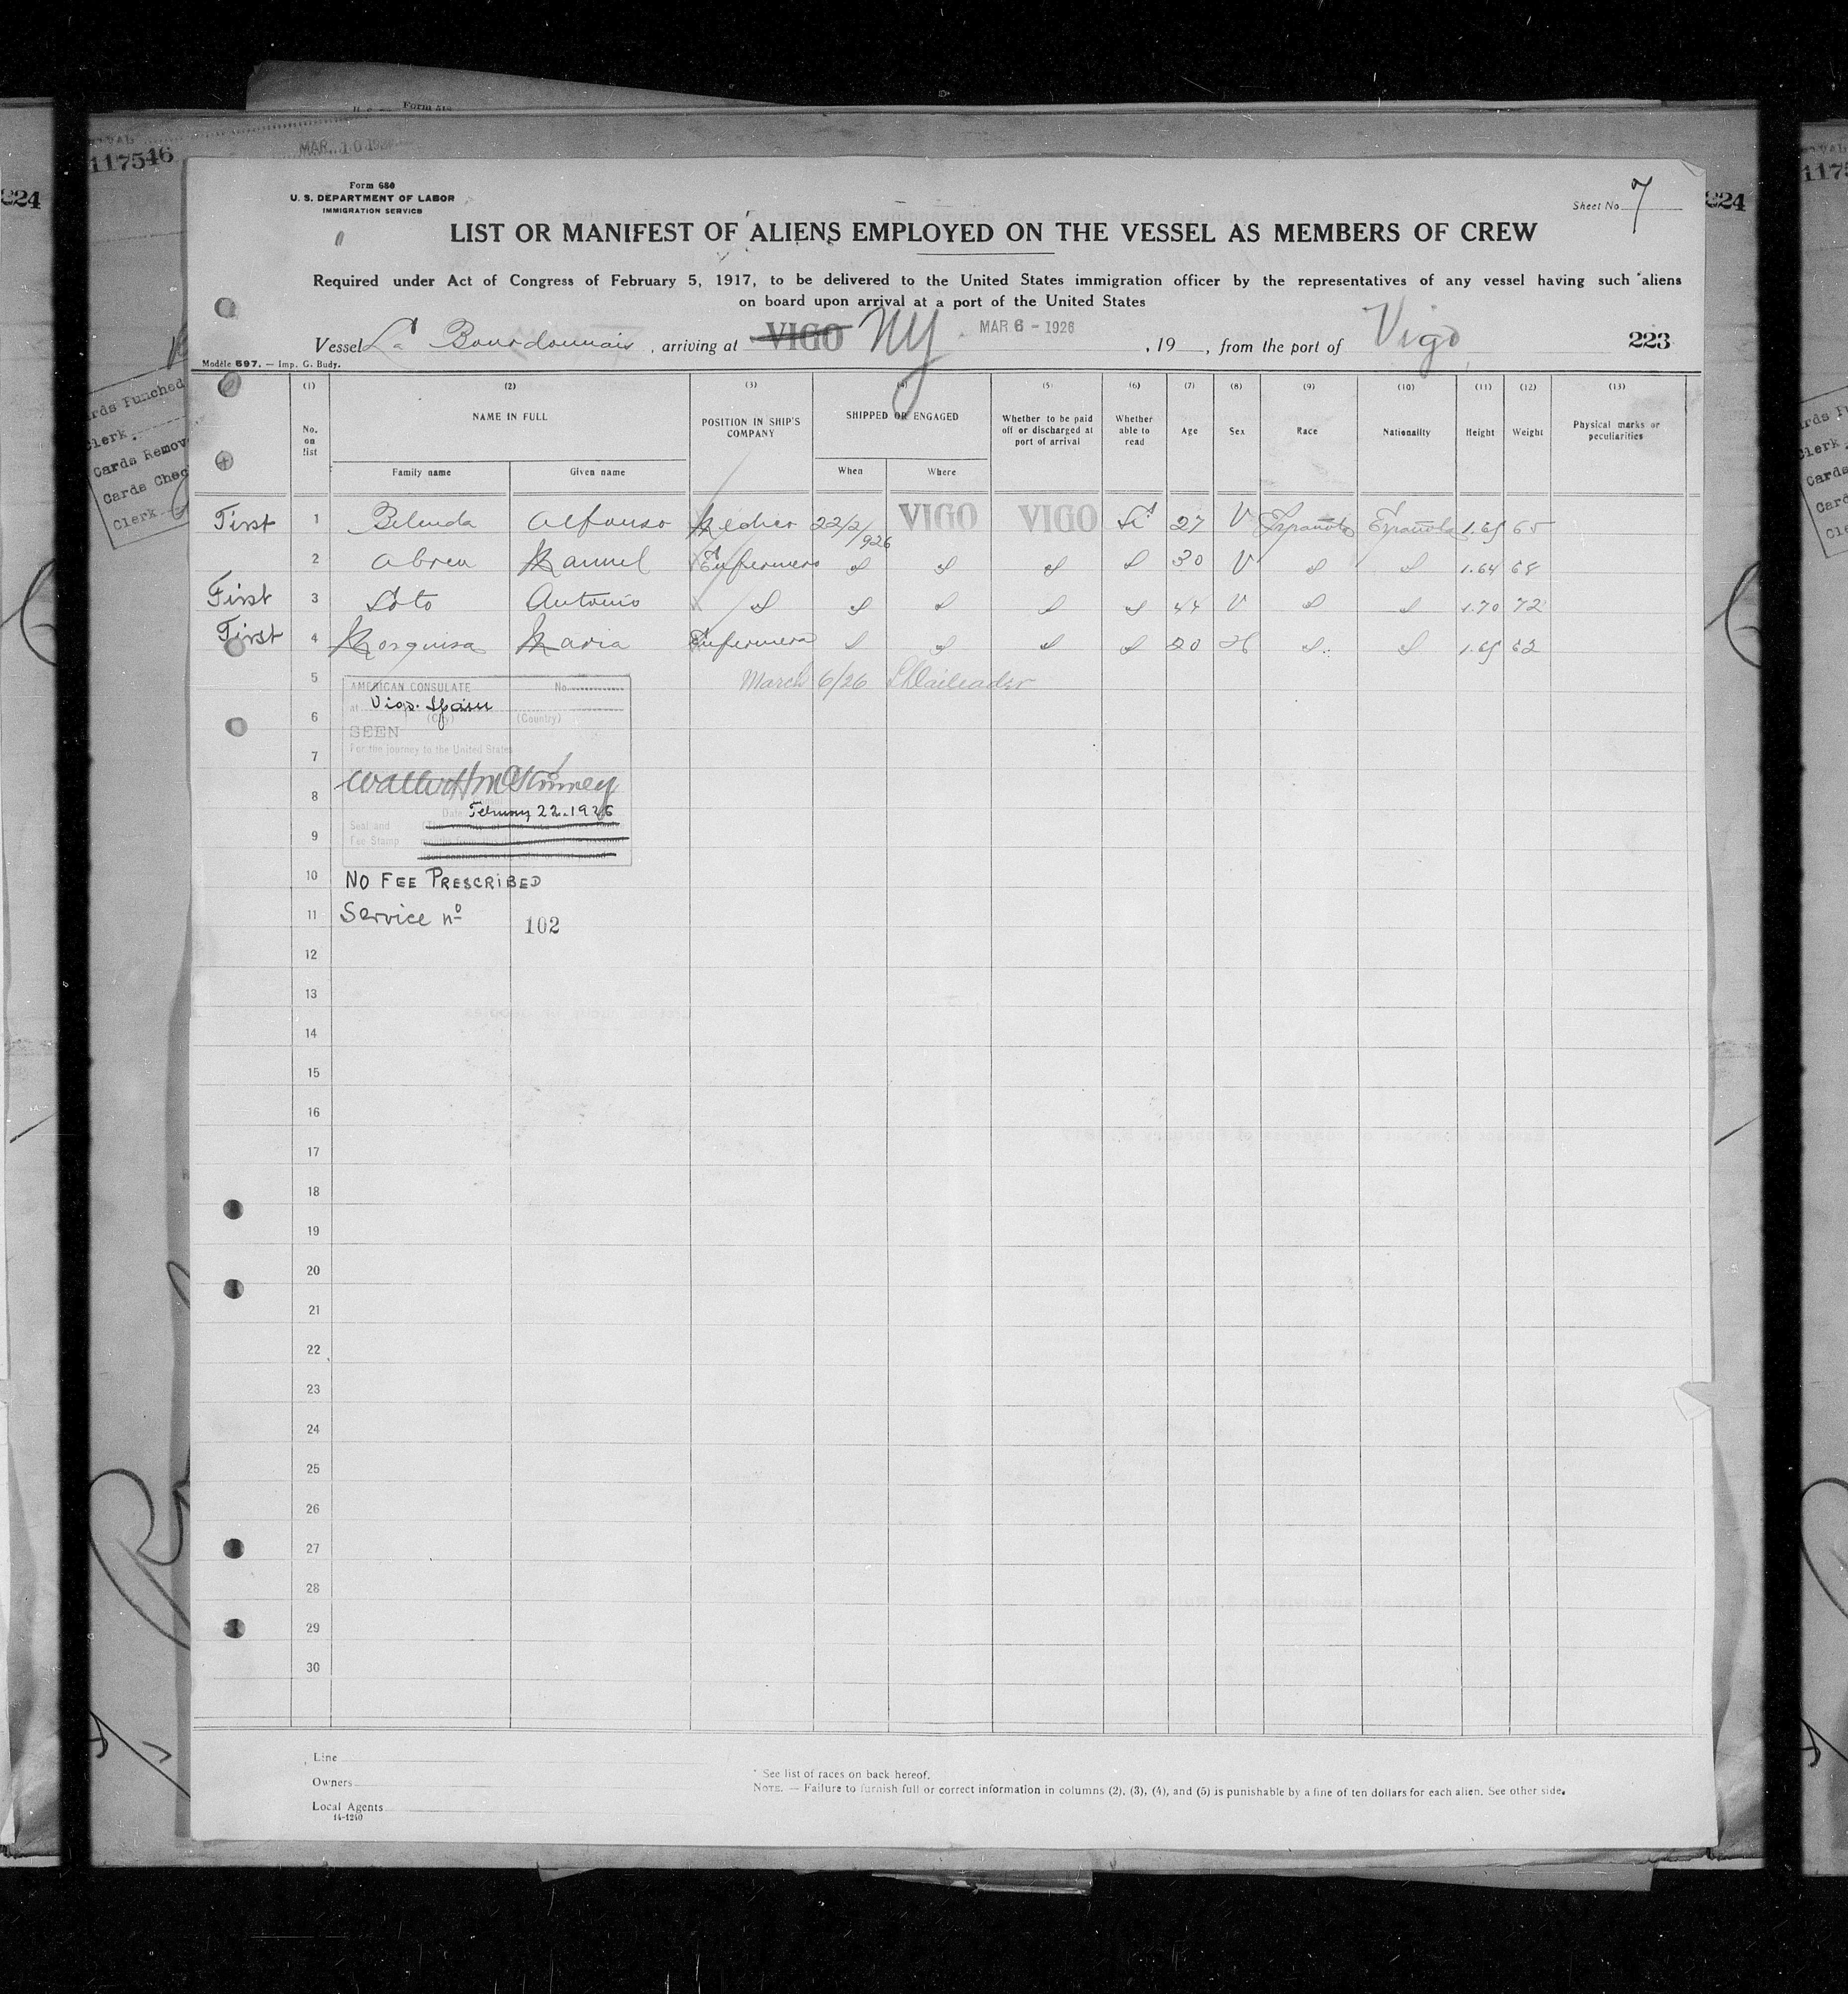 Form 519
VAL
117546
MAR 10 192
224
224
1175
Form 680
U. S. DEPARTMENT OF LABOR
IMMIGRATION SERVICE
Sheet No. 7
LIST OR MANIFEST OF ALIENS EMPLOYED ON THE VESSEL AS MEMBERS OF CREW
Required under Act of Congress of February 5, 1917, to be delivered to the United States immigration officer by the representatives of any vessel having such aliens
on board upon arrival at a port of the United States
Vessel La Bourdonnais, arriving at VIGO NY MAR 6 - 1926, 19 , from the port of Vigo 223
Modèle 597. — Imp. G. Budy.
(1) (2) (3) (4) (5) (6) (7) (8) (9) (10) (11) (12) (13)
No. on list NAME IN FULL POSITION IN SHIP'S COMPANY SHIPPED OR ENGAGED Whether to be paid off or discharged at port of arrival Whether able to read Age Sex Race Nationality Height Weight Physical marks or peculiarities
Family name Given name When Where
First 1 Belenda Alfonso Medico 22/2/926 VIGO VIGO Si 27 V Española Española 1.65 65
2 Abreu Manuel Enfermero d d d d 30 V d d 1.64 68
First 3 Soto Antonio d d d d d 44 V d d 1.70 72
First 4 Morquisa Maria Enfermera d d d d 20 H d d 1.65 62
5 March 6/26
AMERICAN CONSULATE No.
at Vigo. Spain
6 (City) (Country)
SEEN
7 For the journey to the United States
8
Date February 22-1926
Seal and
9 Fee Stamp
10 NO FEE PRESCRIBED
11 Service nº 102
12
13
14
15
16
17
18
19
20
21
22
23
24
25
26
27
28
29
30
Line
Owners
Local Agents
14-1240
* See list of races on back hereof.
NOTE. — Failure to furnish full or correct information in columns (2), (3), (4), and (5) is punishable by a fine of ten dollars for each alien. See other side.
rds Punched
Clerk
Cards Remov
Cards Chec
Clerk